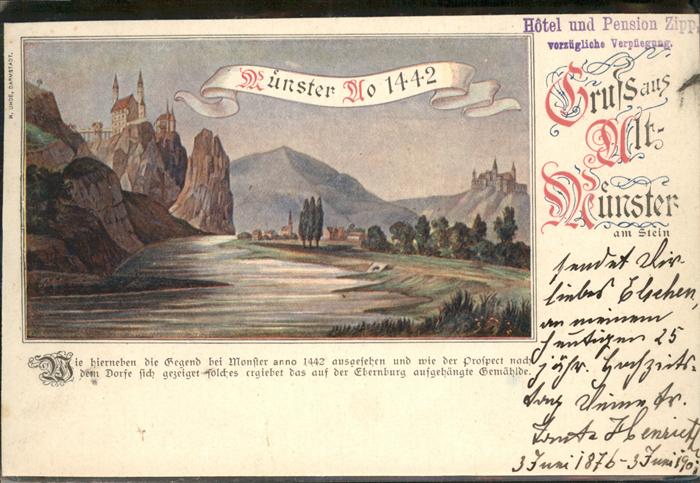 Hôtel und Pension Zipp,
vorzügliche Verpflegung.
H. UHDE, DARMSTADT.
Münster Ao 1442
Gruſs aus
Alt-
Münster
am Stein
Wie hierneben die Gegend bei Monſter anno 1442 ausgeſehen und wie der Proſpect nach
dem Dorfe ſich gezeiget ſolches ergiebet das auf der Ebernburg aufgehängte Gemählde.
sendet Dir
liebes Elschen
an meinem
heutigen 25
jähr. Hochzeits-
tag Deine tr.
Tante Henriette
3 Juni 1876 - 3 Juni 190